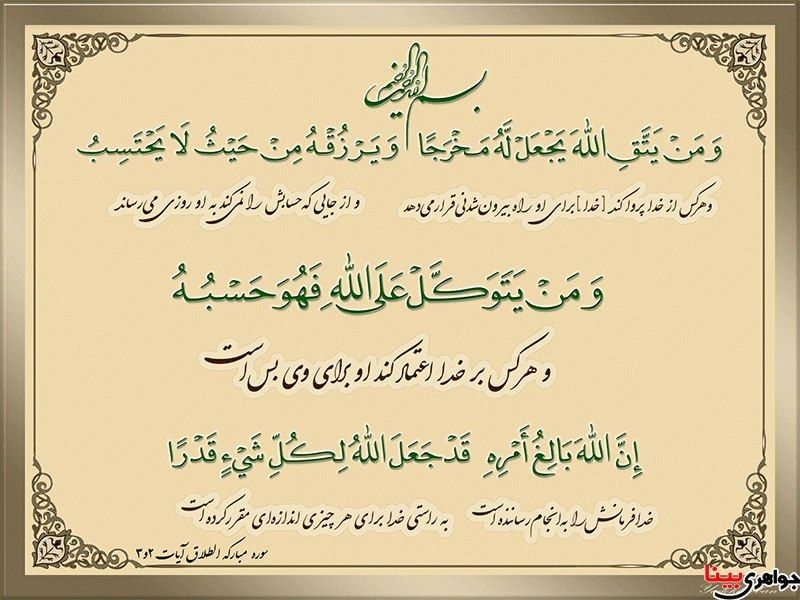 بسم الله الرحمن الرحیم
وَ مَنْ يَتَّقِ اللهَ يَجْعَلْ لَّهُ مَخْرَجًا وَ يَرْزُقْهُ مِنْ حَيْثُ لَا يَحْتَسِبُ
و هرکس از خدا پروا کند [خدا] برای او راه بیرون شدنی قرار می دهد و از جایی که حسابش را نمی کند به او روزی می رساند
وَ مَنْ يَتَوَكَّلْ عَلَى اللهِ فَهُوَ حَسْبُهُ
و هرکس بر خدا اعتماد کند او برای وی بس است
إِنَّ اللهَ بَالِغُ أَمْرِهِ قَدْ جَعَلَ اللهُ لِكُلِّ شَيْءٍ قَدْرًا
خدا فرمانش را به انجام رساننده است به راستی خدا برای هر چیزی اندازه‌ای مقرر کرده است
سوره مبارکه الطلاق آیات ۲و۳
جواهری بینا